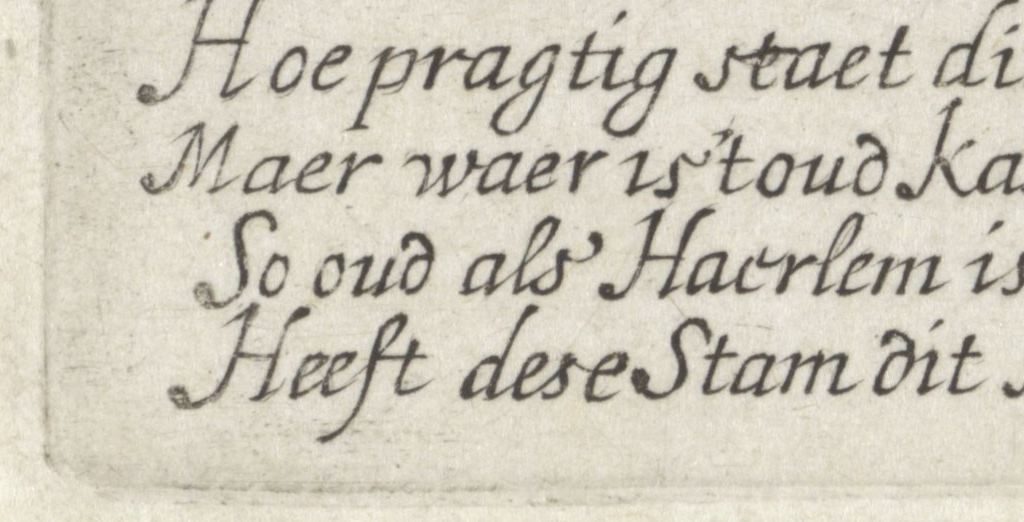 Hoe pragtig staet di
Maer waer is't oud Ka
So oud als Haerlem is
Heeft dese Stam dit